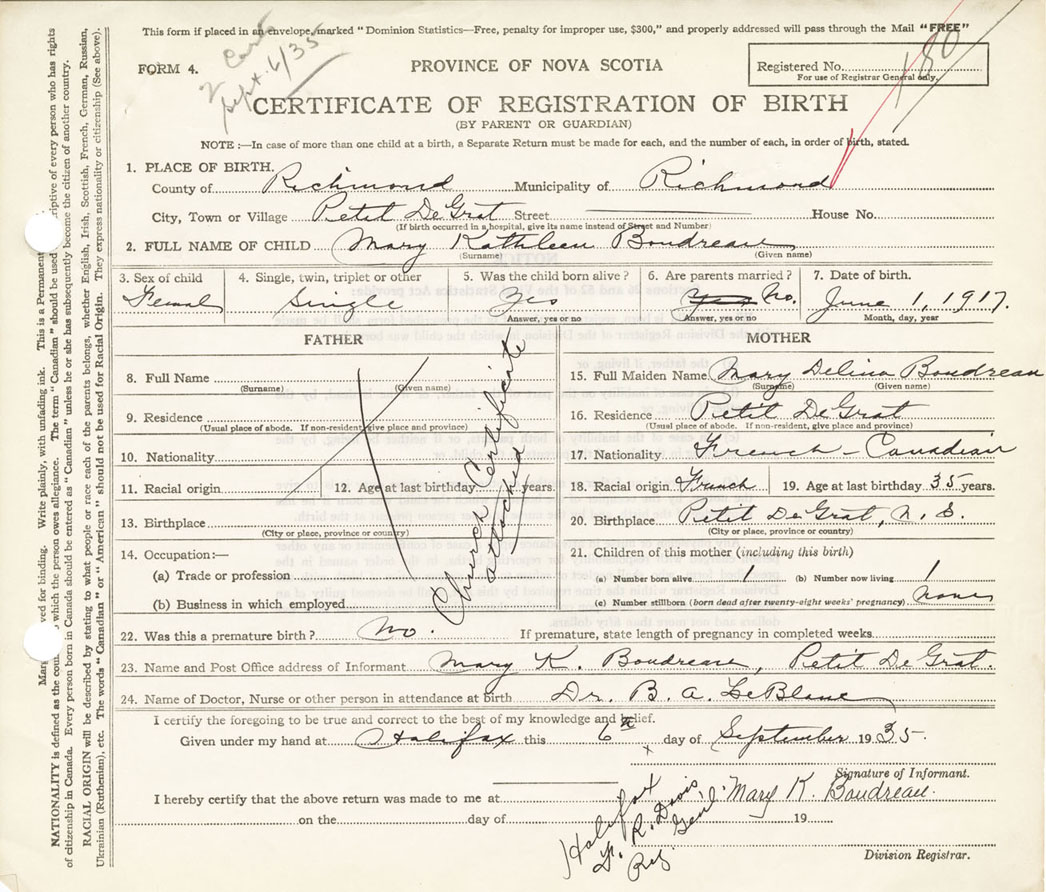 This form if placed in an envelope, marked "Dominion Statistics—Free, penalty for improper use, $300," and properly addressed will pass through the Mail "FREE"
2 Cards
Sept. 6/35
180
FORM 4.
PROVINCE OF NOVA SCOTIA
Registered No.
For use of Registrar General only.
CERTIFICATE OF REGISTRATION OF BIRTH
(BY PARENT OR GUARDIAN)
NOTE :—In case of more than one child at a birth, a Separate Return must be made for each, and the number of each, in order of birth, stated.
1. PLACE OF BIRTH.
County of Richmond Municipality of Richmond
City, Town or Village Petit DeGrat Street House No.
(If birth occurred in a hospital, give its name instead of Street and Number)
2. FULL NAME OF CHILD Mary Kathleen Boudreau
(Surname) (Given name)
3. Sex of child 4. Single, twin, triplet or other 5. Was the child born alive? 6. Are parents married? 7. Date of birth.
Female Single Yes Yes No. June 1, 1917.
Answer, yes or no Answer, yes or no Month, day, year
FATHER MOTHER
8. Full Name
(Surname) (Given name)
9. Residence
(Usual place of abode. If non-resident, give place and province)
10. Nationality
11. Racial origin 12. Age at last birthday years.
13. Birthplace
(City or place, province or country)
14. Occupation:—
(a) Trade or profession
(b) Business in which employed
Church Certificate
attached
15. Full Maiden Name Mary Delina Boudreau
(Surname) (Given name)
16. Residence Petit DeGrat
(Usual place of abode. If non-resident, give place and province)
17. Nationality French-Canadian
18. Racial origin French 19. Age at last birthday 35 years.
20. Birthplace Petit DeGrat, N. S.
(City or place, province or country)
21. Children of this mother (including this birth)
(a) Number born alive 1 (b) Number now living 1
(c) Number stillborn (born dead after twenty-eight weeks' pregnancy) none
22. Was this a premature birth? No. If premature, state length of pregnancy in completed weeks
23. Name and Post Office address of Informant Mary K. Boudreau, Petit DeGrat.
24. Name of Doctor, Nurse or other person in attendance at birth Dr. B. A. LeBlanc
I certify the foregoing to be true and correct to the best of my knowledge and belief.
Given under my hand at Halifax this 6th day of September 1935.
x
Signature of Informant.
Mary K. Boudreau.
I hereby certify that the above return was made to me at
on the day of 19
Halifax
R. Davis,
Reg. Genl.
Division Registrar.
NATIONALITY is defined as the which the person owes allegiance. The term "Canadian" should be used riptive of every person who has rights
of citizenship in Canada. Every person born in Canada should be entered as "Canadian" unless he or she has subsequently become the citizen of another country.
RACIAL ORIGIN will be described by stating to what people or race each of the parents belongs, whether English, Irish, Scottish, French, German, Russian,
Ukrainian (Ruthenian), etc. The words "Canadian" or "American" should not be used for Racial Origin. They express nationality or citizenship (See above).
ved for binding. Write plainly, with unfading ink. This is a Permanent